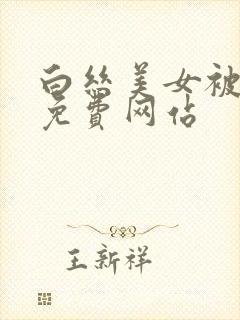 白丝美女被
免費网佔
王新祥